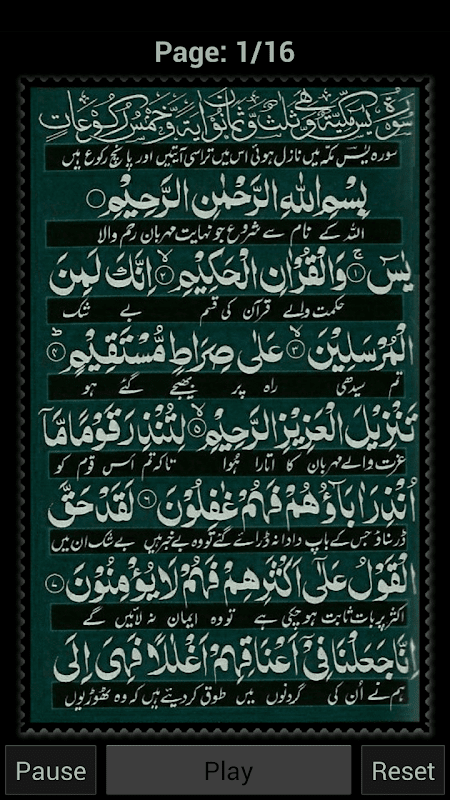 Page: 1/16
سورة يس مكية وهي ثلث وثمانون اية وخمس ركوعات
سورہ یٰسٓ مکہ میں نازل ہوئی اس میں تراسی آیتیں اور پانچ رکوع ہیں
بِسْمِ اللهِ الرَّحْمٰنِ الرَّحِيْمِ
اللہ کے نام سے شروع جو نہایت مہربان رحم والا
يٰسٓ ۚ﴿۱﴾ وَالْقُرْاٰنِ الْحَكِيْمِ ۙ﴿۲﴾ اِنَّكَ لَمِنَ
حکمت والے قرآن کی قسم بے شک
الْمُرْسَلِيْنَ ۙ﴿۳﴾ عَلٰى صِرَاطٍ مُّسْتَقِيْمٍ ؕ﴿۴﴾
تم سیدھی راہ پر بھیجے گئے ہو
تَنْزِيْلَ الْعَزِيْزِ الرَّحِيْمِ ۙ﴿۵﴾ لِتُنْذِرَ قَوْمًا مَّاۤ
عزت والے مہربان کا اتارا ہوا تاکہ تم اس قوم کو
اُنْذِرَ اٰبَآؤُهُمْ فَهُمْ غٰفِلُوْنَ ﴿۶﴾ لَقَدْ حَقَّ
ڈر سناؤ جس کے باپ دادا نہ ڈرائے گئے تو وہ بے خبر ہیں بے شک ان میں
الْقَوْلُ عَلٰۤى اَكْثَرِهِمْ فَهُمْ لَا يُؤْمِنُوْنَ ﴿۷﴾
اکثر پر بات ثابت ہو چکی ہے تو وہ ایمان نہ لائیں گے
اِنَّا جَعَلْنَا فِىْۤ اَعْنَاقِهِمْ اَغْلٰلًا فَهِىَ اِلَى
ہم نے اُن کی گردنوں میں طوق کر دیئے ہیں کہ وہ ٹھوڑیوں
Pause Play Reset